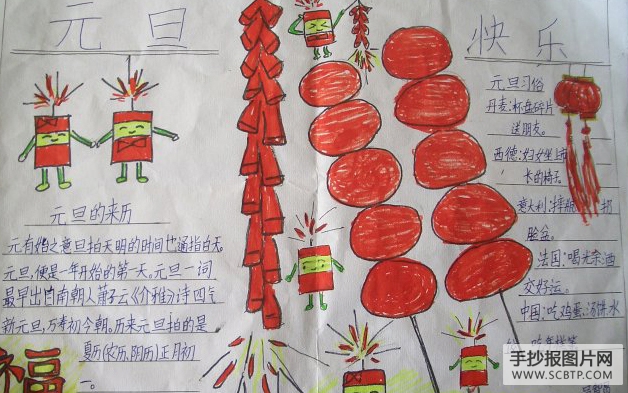 元旦
快乐
元旦的来历
元有始之意旦指天明的时间也通指白天。
元旦,便是一年开始的第一天。元旦一词
最早出自南朝人萧子云《介雅》诗四气
新元旦,万寿初今朝。历来元旦指的是
夏历(农历、阴历)正月初
一。
福
元旦习俗
丹麦:杯盘碎片
送朋友。
西德:妇女坐市
长的椅子。
意大利:摔瓶 扔
脸盆。
法国:喝光余酒
交好运。
中国:吃鸡蛋、汤
手抄报图片网
WWW.SCBTP.COM